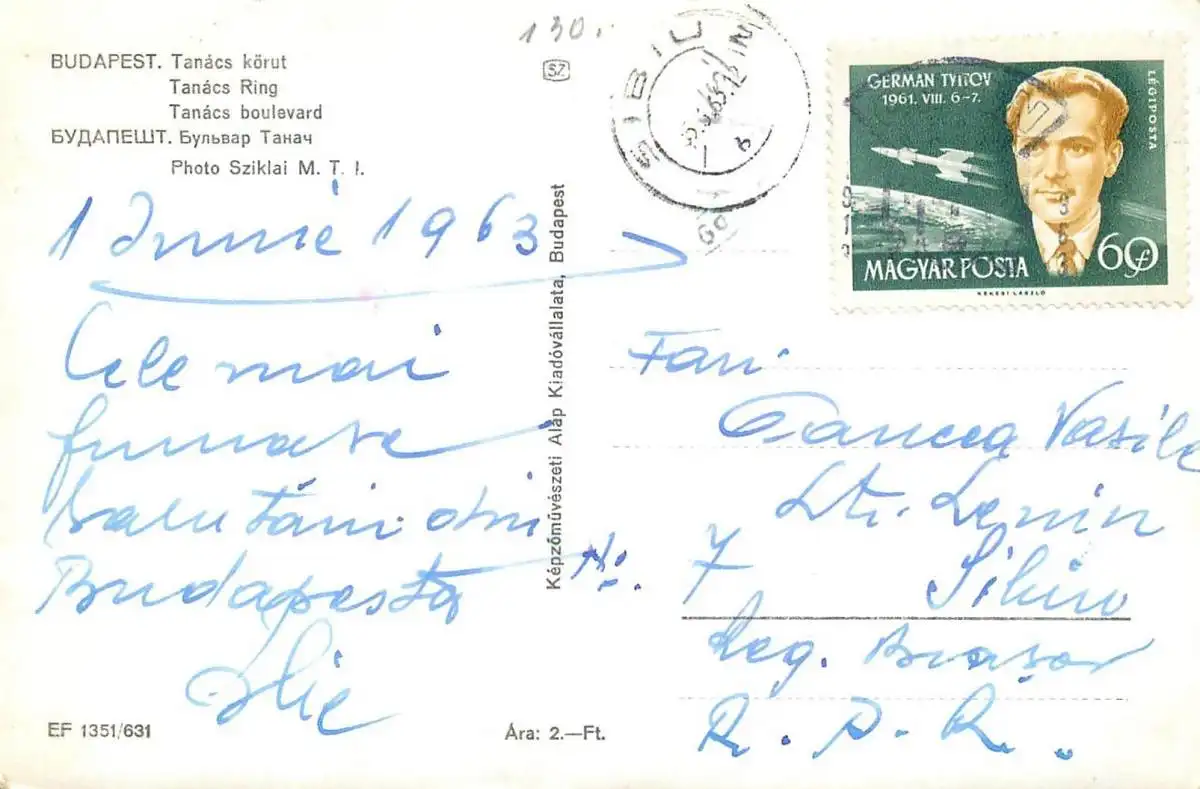 130.
BUDAPEST. Tanács körut
Tanács Ring
Tanács boulevard
БУДАПЕШТ. Бульвар Танач
Photo Sziklai M. T. I.
SZ
SIBIU
GERMAN TYITOV
1961. VIII. 6-7.
LÉGIPOSTA
MAGYAR POSTA
60f
KÉKESI LÁSZLÓ
1 Iunie 1963
Cele mai
frumoase
Salutări din
Budapesta
Ilie
Képzőművészeti Alap Kiadóvállalata, Budapest
Fam.
Vasile
Str. Lenin
No. 7 Sibiu
Reg. Brasov
R. P. R.
EF 1351/631
Ára: 2.—Ft.